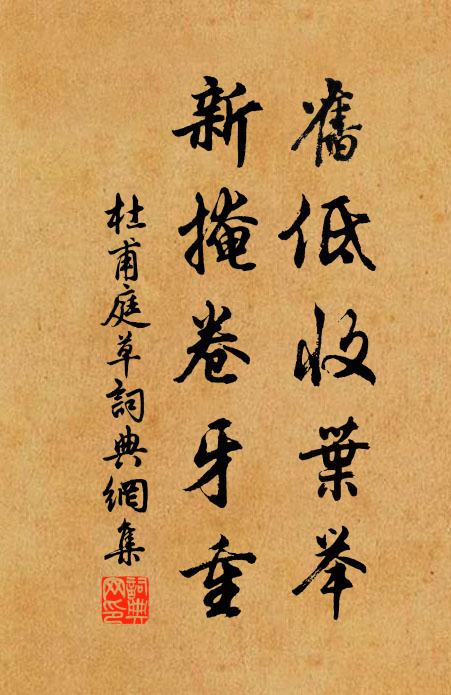 舊低收葉举
新掩卷牙重
杜甫庭草詞典網集
詞典网印